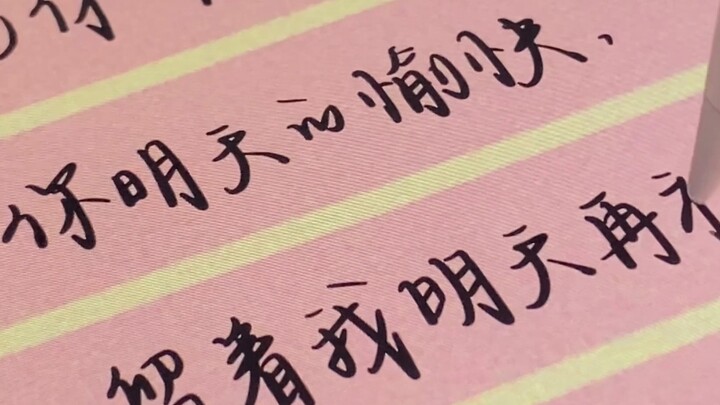 你
你明天的愉快、
留着我明天再